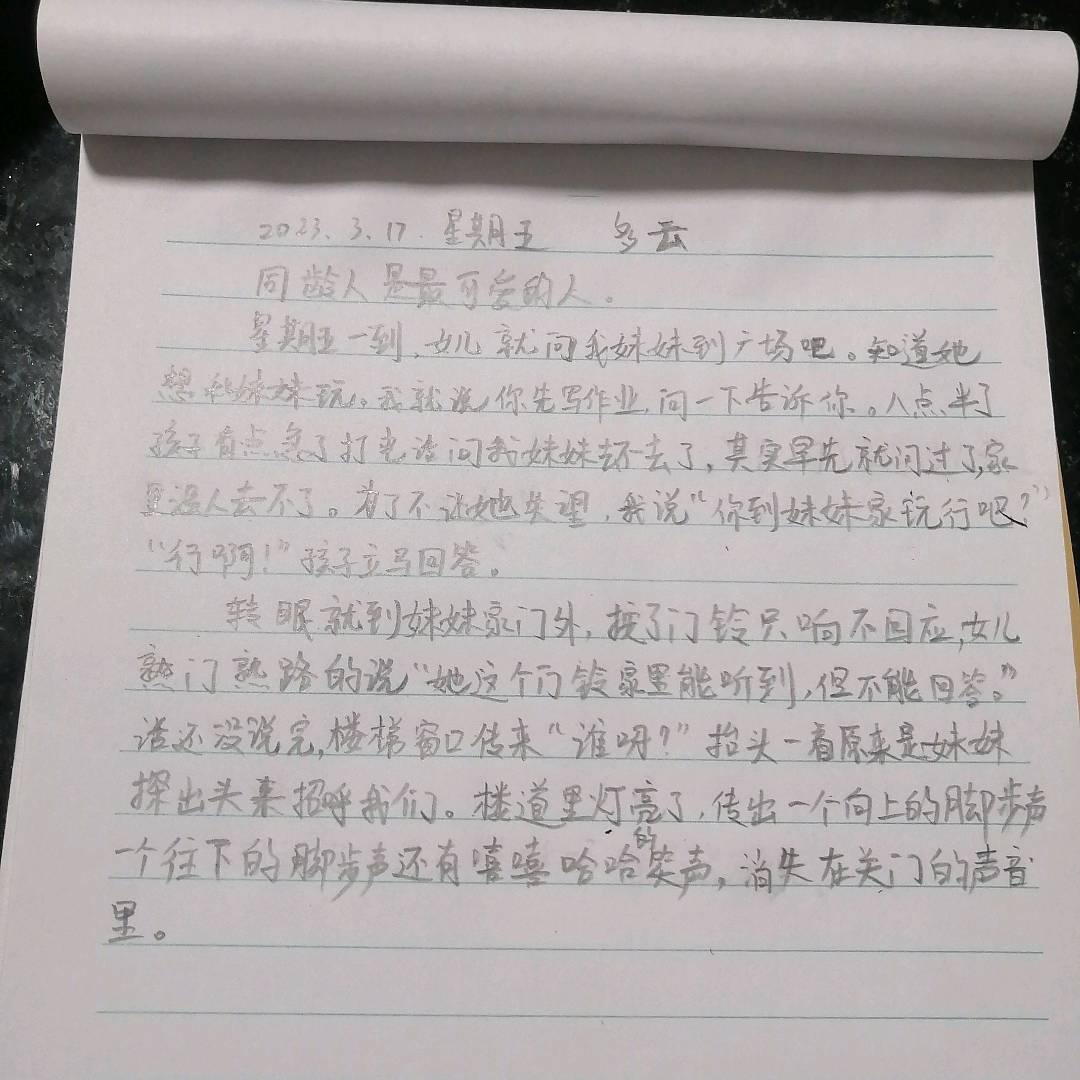 2023.3.17. 星期五 多云
同龄人是最可爱的人。
星期五一到,女儿就问我妹妹到广场吧。知道她
想和妹妹玩。我就说你先写作业,问一下告诉你。八点半了
孩子有点急了打电话问我妹妹去不去了,其实早先就问过了,家
里没人去不了。为了不让她失望,我说“你到妹妹家玩行吧?”
“行啊!”孩子立马回答。
转眼就到妹妹家门外,按了门铃只响不回应,女儿
熟门熟路的说“她这个门铃家里能听到,但不能回答。”
话还没说完,楼梯窗口传来“谁呀?”抬头一看原来是妹妹
探出头来招呼我们。楼道里灯亮了,传出一个向上的脚步声
一个往下的脚步声还有嘻嘻哈哈的笑声,消失在关门的声音
里。